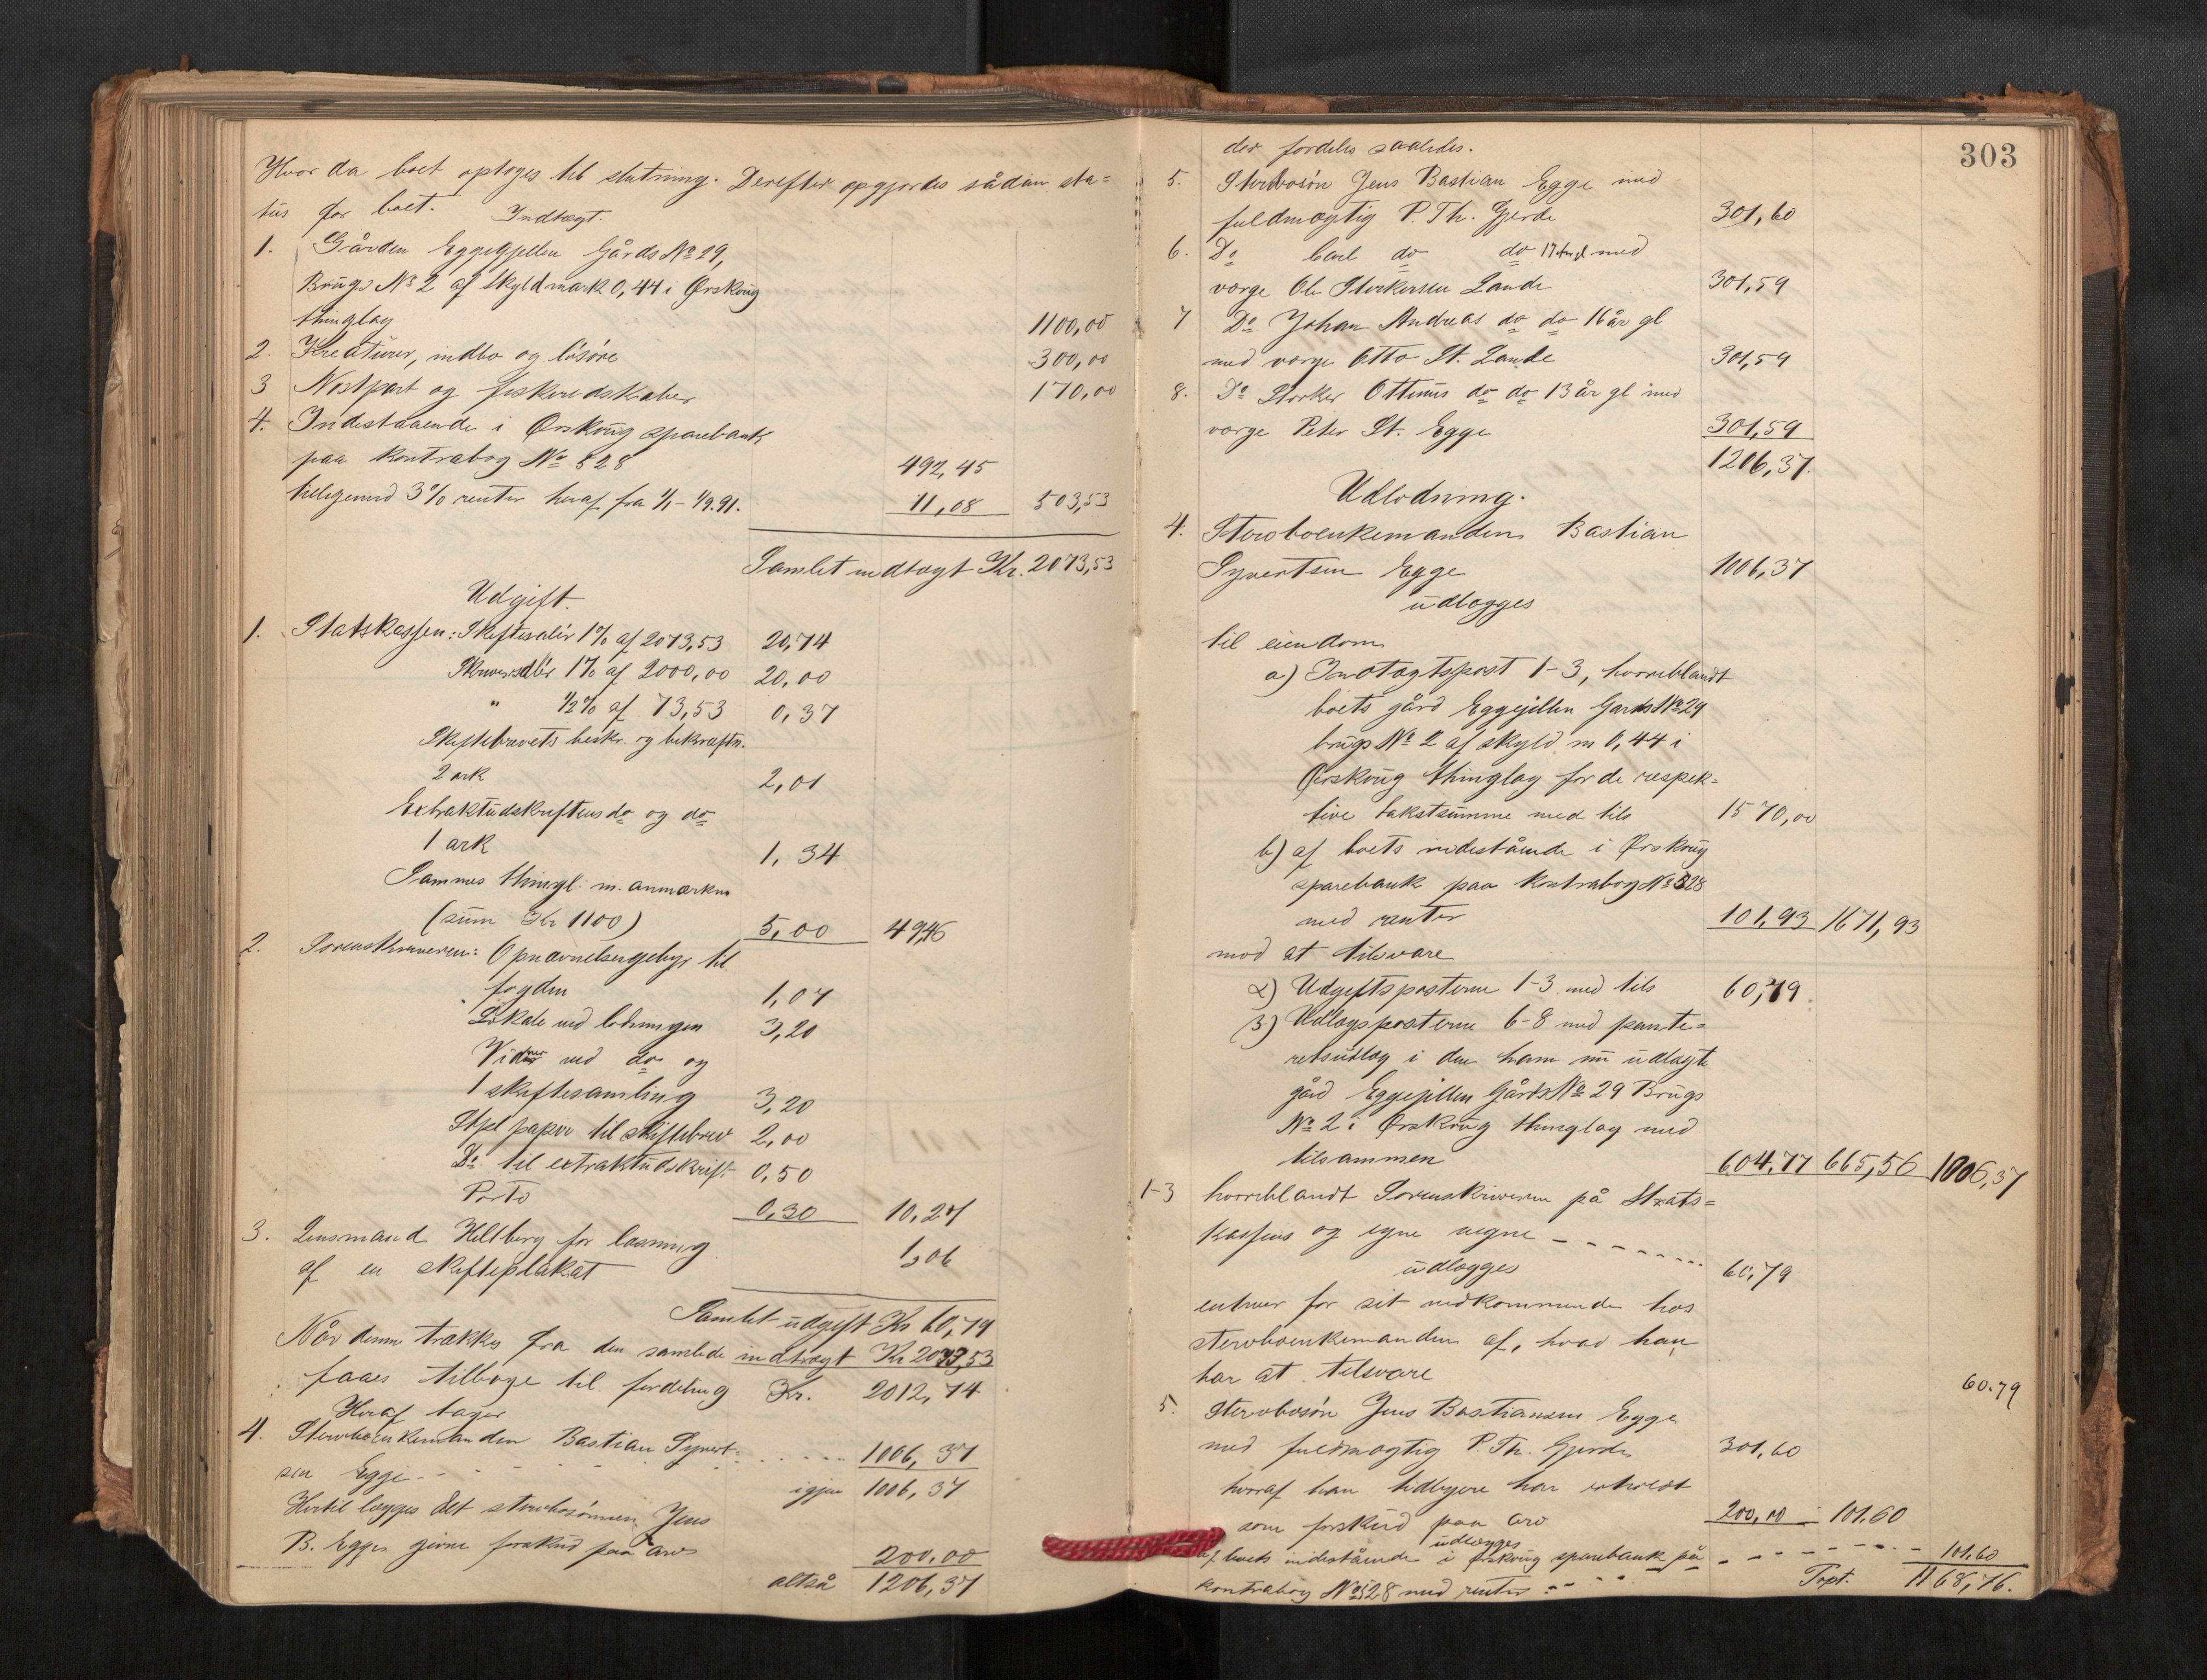 Hvor da boet optoges til slutning. Derefter opgjordes sådan sta=
tus for boet. Indtægt.
1. Gården Eggegjellen Gårds No 29,
Brugs No 2 af Skyldmark 0,44 i Ørskoug
thinglag 1100,00
2. Kreaturer, indbo og løsøre 300,00
3 Nøstpart og fiskeredskaber 170,00
4. Indestaaende i Ørskoug sparebank
paa Kontrabog No 528 492,45
tilligemed 3% renter heraf fra 1/1 - 1/9.91. 11,08 503,53
Samlet indtægt Kr. 2073,53
Udgift.
1. Statskassen: Skiftesalær 1% af 2073,53 20,74
Skriversalær 1% af 2000,00 20,00
" 1/2% af 73,53 0,37
Skiftebrevets beskr. og bekræftn.
2 ark 2,01
Extraktudskriftens do og do
1 ark 1,34
Sammes thingl. m. anmærkn
(sum Kr 1100) 5,00 49,46
2. Sorenskriveren: Opnævnelsesgebyr til
fogden 1,07
Lokale ved lodningen 3,20
Vidner ved do og
1 skiftesamling 3,20
Stpl papir til skiftebrev 2,00
Do til extraktudskrift 0,50
Porto 0,30 10,27
3. Lensmand Hellberg for læsning
af en skifteplakat 1,06
Samlet udgift Kr 60,79
Når denne trækkes fra den samlede indtægt Kr 2073,53
faaes tilbage til fordeling Kr. 2012,74
Heraf tager
4. Stervboenkemanden Bastian Syvert-
sen Egge 1006,37
igjen 1006,37
Hertil lægges det stervbosønnen Jens
B. Egge givne forskud paa arv 200.00
altså 1206,37
303
der fordeles saaledes.
5. Stervbosøn Jens Bastian Egge med
fuldmægtig P. Th. Gjerde 301,60
6. Do Carl do do 17 år gl med
værge Ole Storkersen Lande 301,59
7 Do Johan Andreas do do 16 år gl
med værge Otto St. Lande 301,59
8. Do Storker Ottinus do do 13 år gl med
værge Peter St. Egge 301,59
1206,37.
Udlodning.
4. Stervboenkemanden Bastian
Syvertsen Egge 1006,37
udlægges
til eiendom
a) Indtægtspost 1-3, hvoriblandt
boets gård Eggegjellen Gards No 29
brugs No 2 af skyld m 0,44 i
Ørskoug thinglag for de respek=
tive takstsumme med tils 1570,00
b) af boets indestående i Ørskoug
sparebank paa kontrabog No 528
med renter 101,93 1671,93
mod at tilsvare
α) Udgiftsposterne 1-3 med tils 60,79
β) Udlægsposterne 6-8 med pante=
retsudlæg i den ham nu udlagte
gård Eggegjellen Gårds No 29 Brugs
No 2 i Ørskoug thinglag med
tilsammen 604,77 665,56 1006,37
1-3 hvoriblandt Sorenskriveren på Stats=
kassens og egne vegne 60,79
udlægges
enhver for sit vedkommende hos
stervboenkemanden af, hvad han
har at tilsvare 60.79
5. Stervbosøn Jens Bastiansen Egge
med fuldmægtig P. Th. Gjerde 301,60
hvoraf han tidligere har erholdt
som forskud paa arv 200,00 101.60
udlægges
af boets indestående i Ørskoug sparebank på 101.60
kontrabog No 528 med renter Trpt. 1168,76.